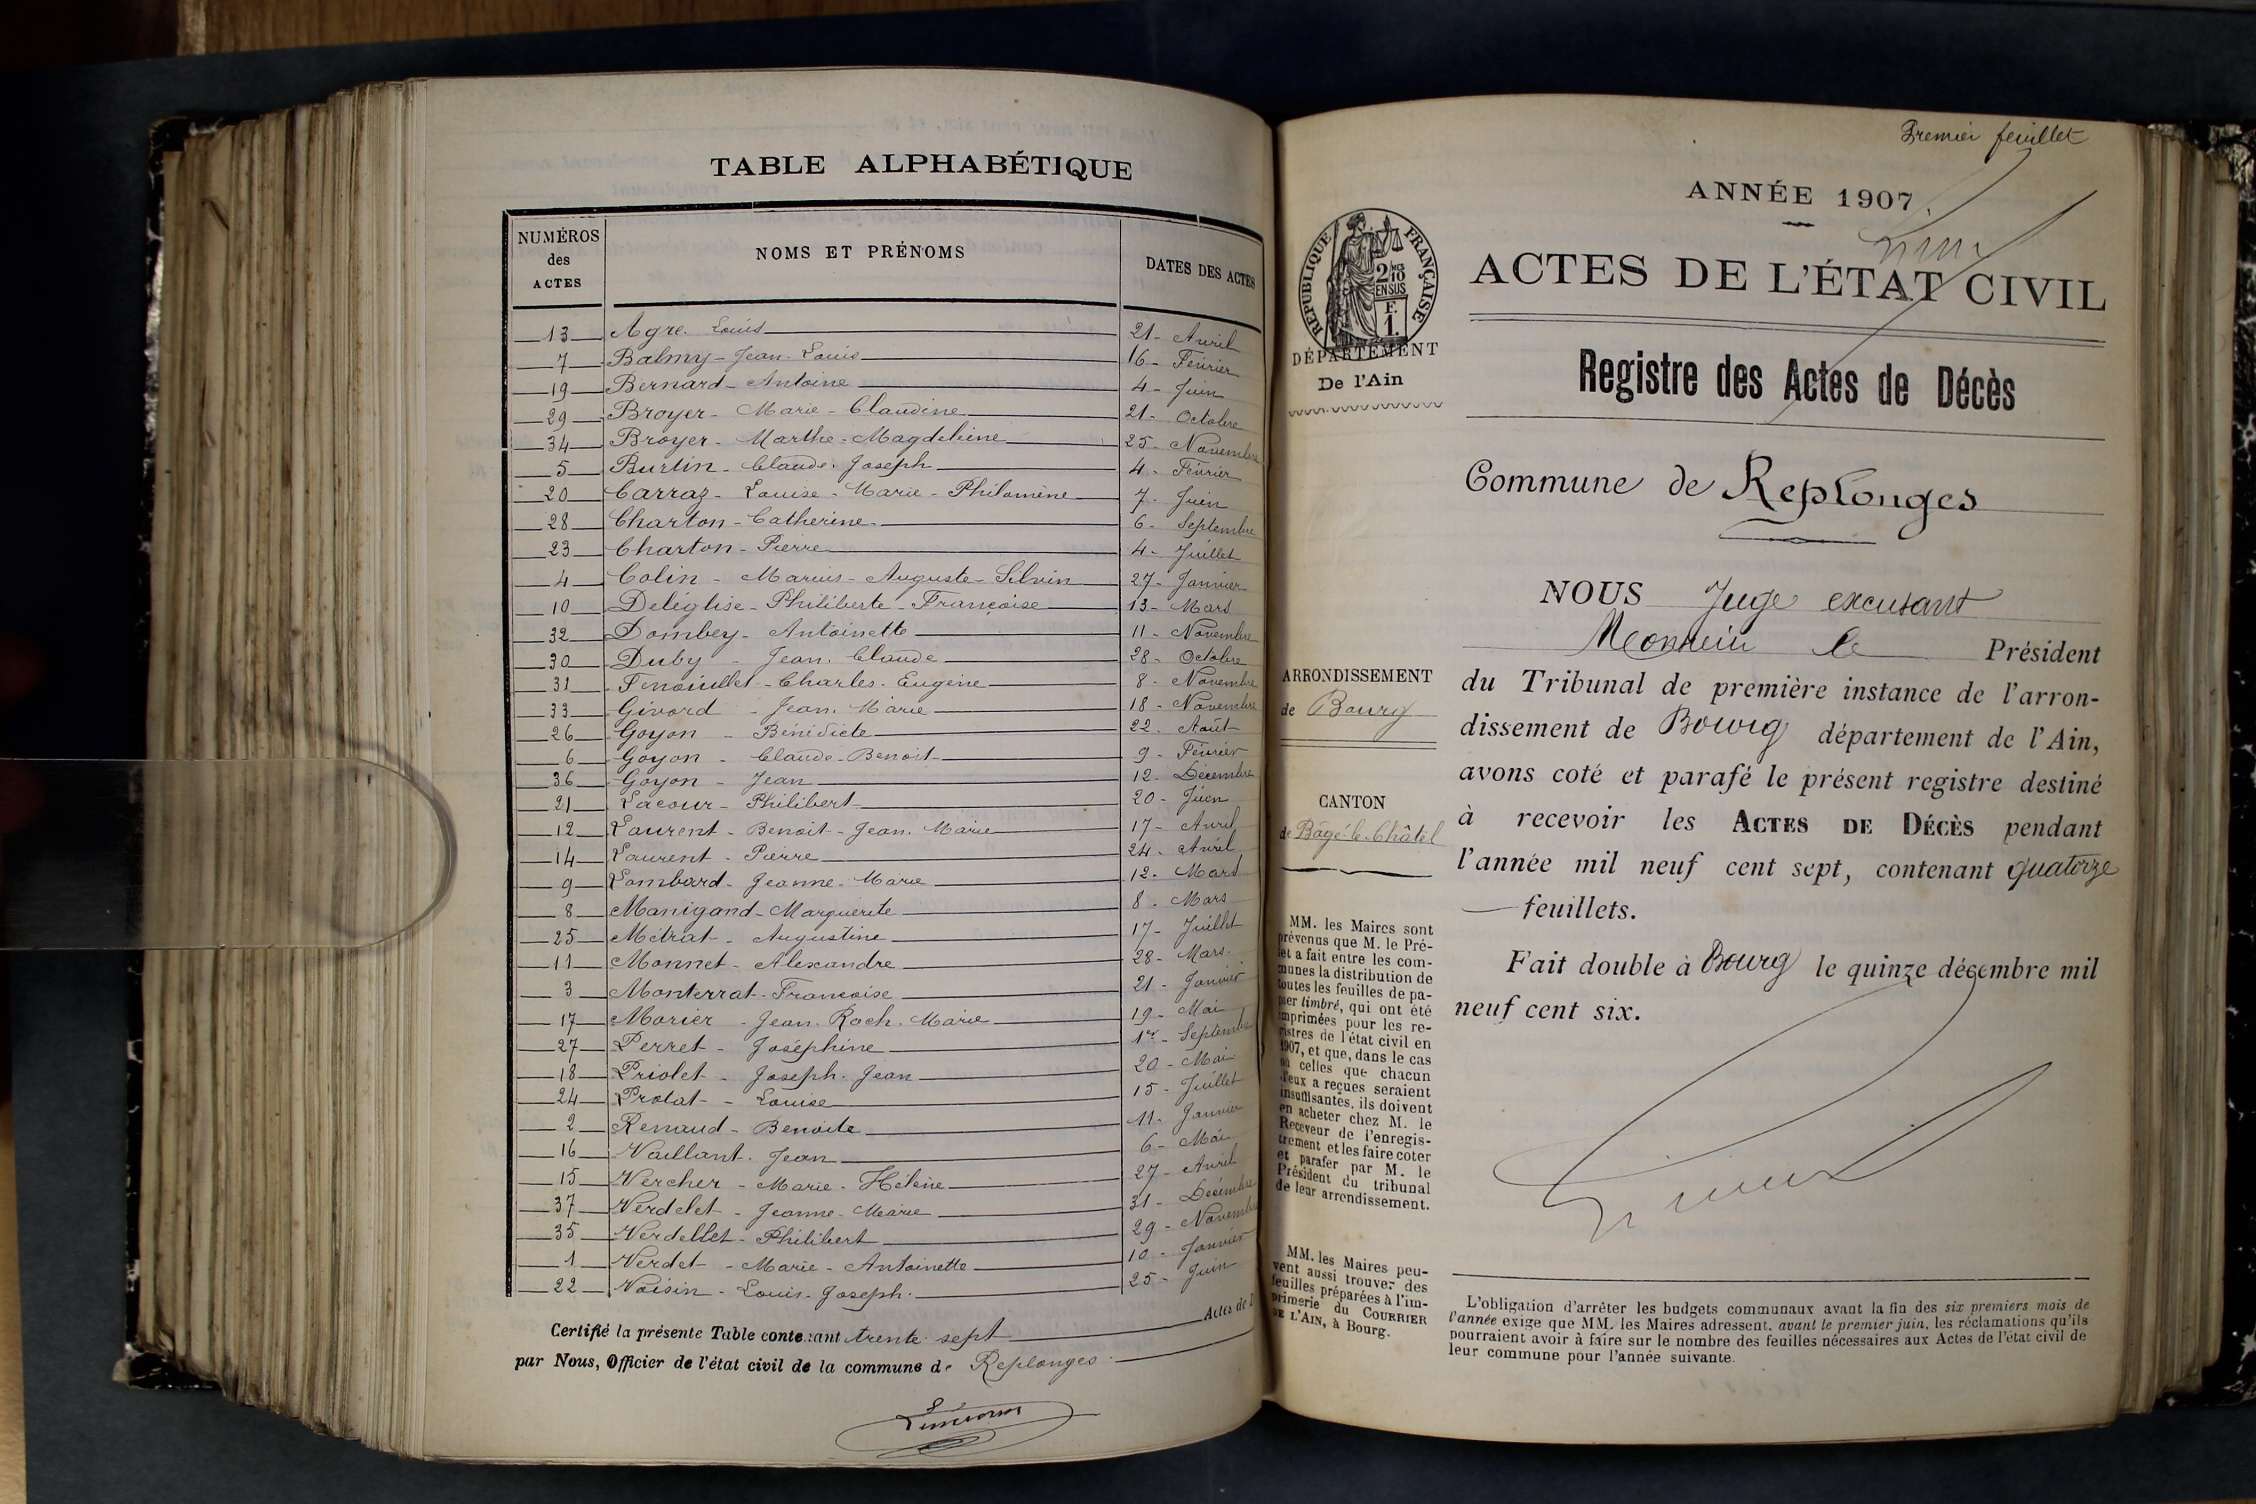 TABLE ALPHABÉTIQUE
NUMÉROS des ACTES NOMS ET PRÉNOMS DATES DES ACTES
13 Agre Louis 21 - Avril
7 Balmy - Jean - Louis 16 - Février
19 Bernard - Antoine 4 - Juin
29 Broyer - Marie - Claudine 21 - Octobre
34 Broyer - Marthe - Magdeleine 25 - Novembre
5 Burtin - Claude - Joseph 4 - Février
20 Carraz - Louise - Marie - Philomène 7 - Juin
28 Charton - Catherine 6 - Septembre
23 Charton - Pierre 4 - Juillet
4 Colin - Marius - Auguste - Silvin 27 - Janvier
10 Deléglise - Philiberte - Françoise 13 - Mars
32 Dombey - Antoinette 11 - Novembre
30 Duby - Jean - Claude 28 - Octobre
31 Fenouillet - Charles - Eugène 8 - Novembre
33 Givord - Jean - Marie 18 - Novembre
26 Goyon - Bénédicte 22 - Août
6 Goyon - Claude - Benoit 9 - Février
36 Goyon - Jean 12 - Décembre
21 Lacour - Philibert 20 - Juin
12 Laurent - Benoit - Jean - Marie 17 - Avril
14 Laurent - Pierre 24 - Avril
9 Lombard - Jeanne - Marie 12 - Mars
8 Manigand - Marguerite 8 - Mars
25 Métrat - Augustine 17 - Juillet
11 Monnet - Alexandre 28 - Mars
3 Monterrat - Françoise 21 - Janvier
17 Morier - Jean - Roch - Marie 19 - Mai
27 Perret - Joséphine 1er - Septembre
18 Priolet - Joseph - Jean 20 - Mai
24 Prolat - Louise 15 - Juillet
2 Renaud - Benoite 11 - Janvier
16 Vaillant - Jean 6 - Mai
15 Vercher - Marie - Hélène 27 - Avril
37 Verdelet - Jeanne - Marie 31 - Décembre
35 Verdellet - Philibert 29 - Novembre
1 Verdet - Marie - Antoinette 10 - Janvier
22 Voisin - Louis - Joseph 25 - Juin
Certifié la présente Table contenant trente sept Actes de
par Nous, Officier de l'état civil de la commune de Replonges
Premier feuillet
ANNÉE 1907
ACTES DE L'ÉTAT CIVIL
RÉPUBLIQUE FRANÇAISE
2/10 MES EN SUS
F. 1.
DÉPARTEMENT
De l'Ain
Registre des Actes de Décès
Commune de Replonges
NOUS Juge excusant
Monsieur le Président
du Tribunal de première instance de l'arron-
dissement de Bourg département de l'Ain,
avons coté et parafé le présent registre destiné
à recevoir les ACTES DE DÉCÈS pendant
l'année mil neuf cent sept, contenant quatorze
feuillets.
Fait double à Bourg le quinze décembre mil
neuf cent six.
ARRONDISSEMENT
de Bourg
CANTON
de Bâgé-le-Châtel
MM. les Maires sont
prévenus que M. le Pré-
fet a fait entre les com-
munes la distribution de
toutes les feuilles de pa-
pier timbré, qui ont été
imprimées pour les re-
gistres de l'état civil en
1907, et que, dans le cas
où celles que chacun
d'eux a reçues seraient
insuffisantes, ils doivent
en acheter chez M. le
Receveur de l'enregis-
trement et les faire coter
et parafer par M. le
Président du tribunal
de leur arrondissement.
MM. les Maires peu-
vent aussi trouver des
feuilles préparées à l'im-
primerie du COURRIER
DE L'AIN, à Bourg.
L'obligation d'arrêter les budgets communaux avant la fin des six premiers mois de
l'année exige que MM. les Maires adressent, avant le premier juin, les réclamations qu'ils
pourraient avoir à faire sur le nombre des feuilles nécessaires aux Actes de l'état civil de
leur commune pour l'année suivante.